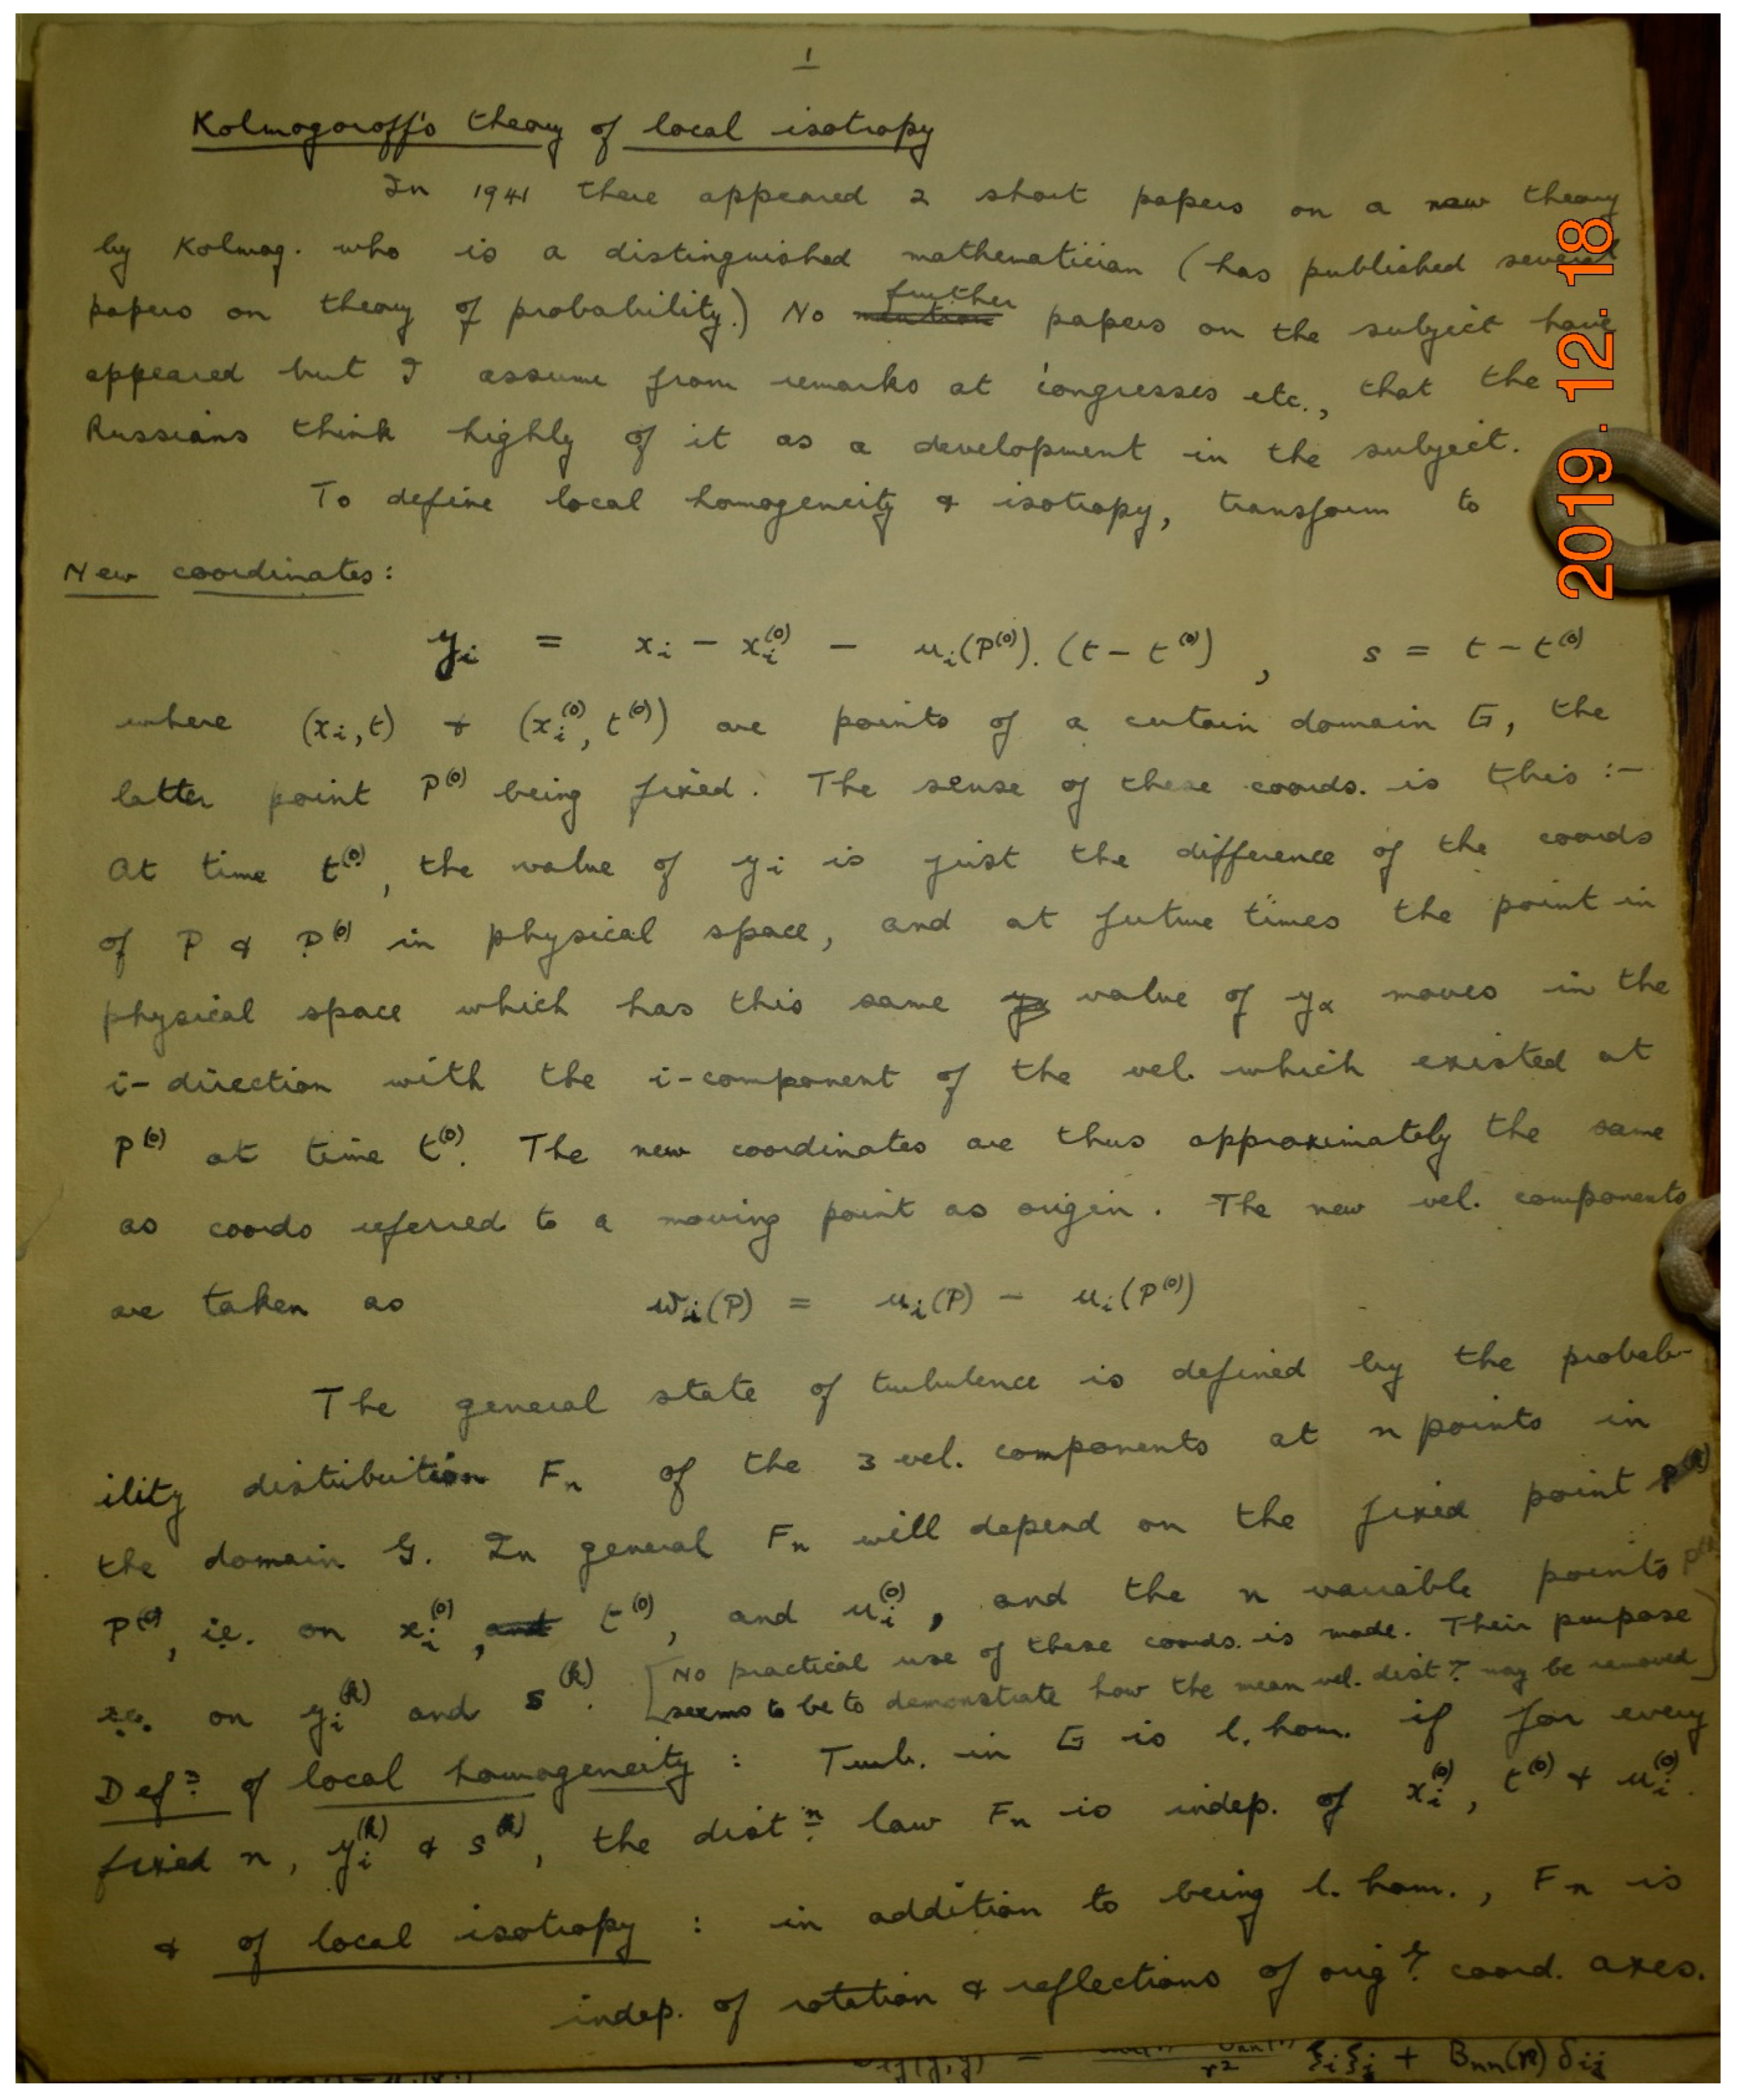 1
Kolmogoroff's theory of local isotropy
In 1941 there appeared 2 short papers on a new theory
by Kolmog. who is a distinguished mathematician (has published several
papers on theory of probability.) No further papers on the subject have
appeared but I assume from remarks at congresses etc., that the
Russians think highly of it as a development in the subject.
To define local homogeneity & isotropy, transform to
New coordinates:
y_i = x_i - x_i^(0) - u_i(P^(0)). (t - t^(0)), s = t - t^(0)
where (x_i, t) + (x_i^(0), t^(0)) are points of a certain domain G, the
latter point P^(0) being fixed. The sense of these coords. is this :-
At time t^(0), the value of y_i is just the difference of the coords
of P & P^(0) in physical space, and at future times the point in
physical space which has this same value of y_α moves in the
i-direction with the i-component of the vel. which existed at
P^(0) at time t^(0). The new coordinates are thus approximately the same
as coords referred to a moving point as origin. The new vel. components
are taken as w_i(P) = u_i(P) - u_i(P^(0))
The general state of turbulence is defined by the probab-
ility distribution F_n of the 3 vel. components at n points in
the domain G. In general F_n will depend on the fixed point
P^(0), i.e. on x_i^(0), t^(0), and u_i^(0), and the n variable points
i.e. on y_i^(k) and s^(k). [No practical use of these coords. is made. Their purpose
seems to be to demonstrate how the mean vel. dist? may be removed]
Def? of local homogeneity : Turb. in G is l. hom. if for every
fixed n, y_i^(k) & s^(k), the dist^n law F_n is indep. of x_i^(0), t^(0) + u_i^(0).
& of local isotropy : in addition to being l. hom., F_n is
indep. of rotation & reflections of orig? coord. axes.
r^2 ξ_i ξ_j + B_nn(r) δ_ij
2019.12.18